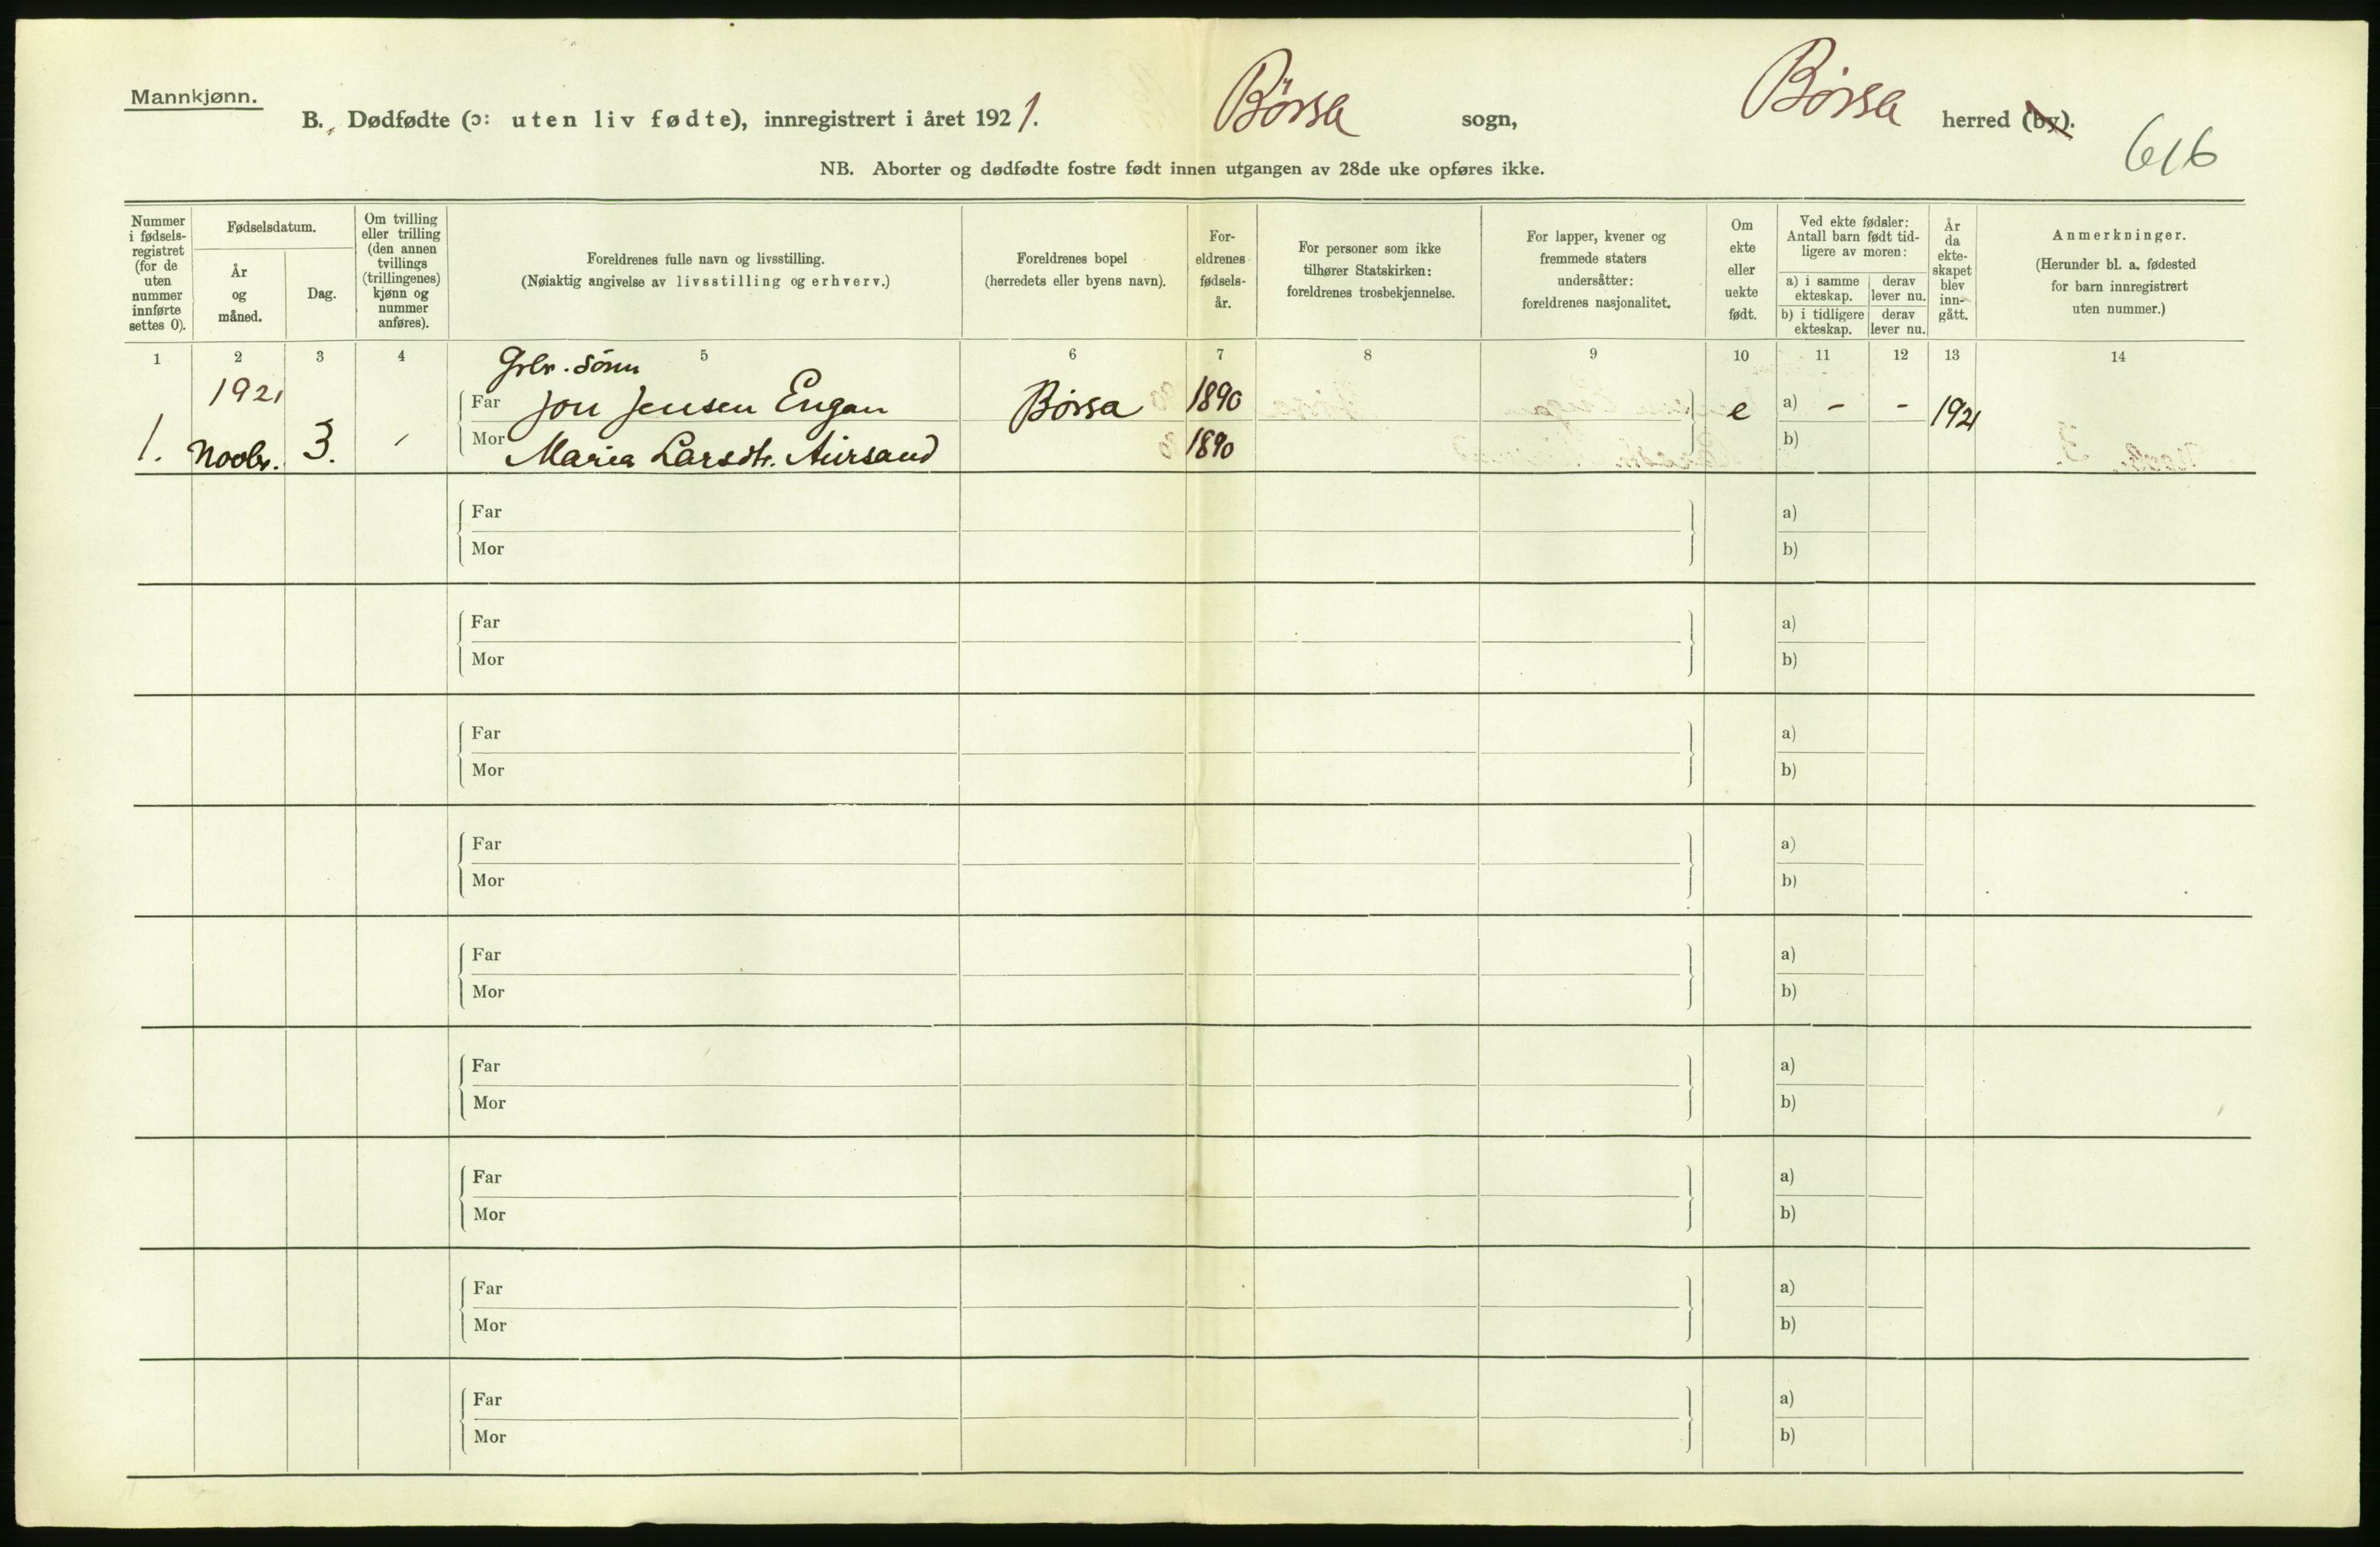 Mannkjønn.
B. Dødfødte (ɔ: uten liv fødte), innregistrert i året 1921. Börsa sogn, Börsa herred (by).
616
NB. Aborter og dødfødte fostre født innen utgangen av 28de uke opføres ikke.
Nummer i fødsels-registret (for de uten nummer innførte settes 0).
Fødselsdatum.
År og måned.
Dag.
Om tvilling eller trilling (den annen tvillings (trillingenes) kjønn og nummer anføres).
Foreldrenes fulle navn og livsstilling.
(Nøiaktig angivelse av livsstilling og erhverv.)
Foreldrenes bopel
(herredets eller byens navn).
For-eldrenes fødsels-år.
For personer som ikke tilhører Statskirken: foreldrenes trosbekjennelse.
For lapper, kvener og fremmede staters undersåtter: foreldrenes nasjonalitet.
Om ekte eller uekte født.
Ved ekte fødsler: Antall barn født tid-ligere av moren:
a) i samme ekteskap.
derav lever nu.
b) i tidligere ekteskap.
derav lever nu.
År da ekte-skapet blev inn-gått.
Anmerkninger.
(Herunder bl. a. fødested for barn innregistrert uten nummer.)
1 2 3 4 5 6 7 8 9 10 11 12 13 14
Grbr. sönn
1921 Far Jon Jensen Engan Börsa 1890 e a) - - 1921
1. Novbr. 3. / Mor Maria Larsdtr. Aursand 1890 b)
Far a)
Mor b)
Far a)
Mor b)
Far a)
Mor b)
Far a)
Mor b)
Far a)
Mor b)
Far a)
Mor b)
Far a)
Mor b)
Far a)
Mor b)
Far a)
Mor b)